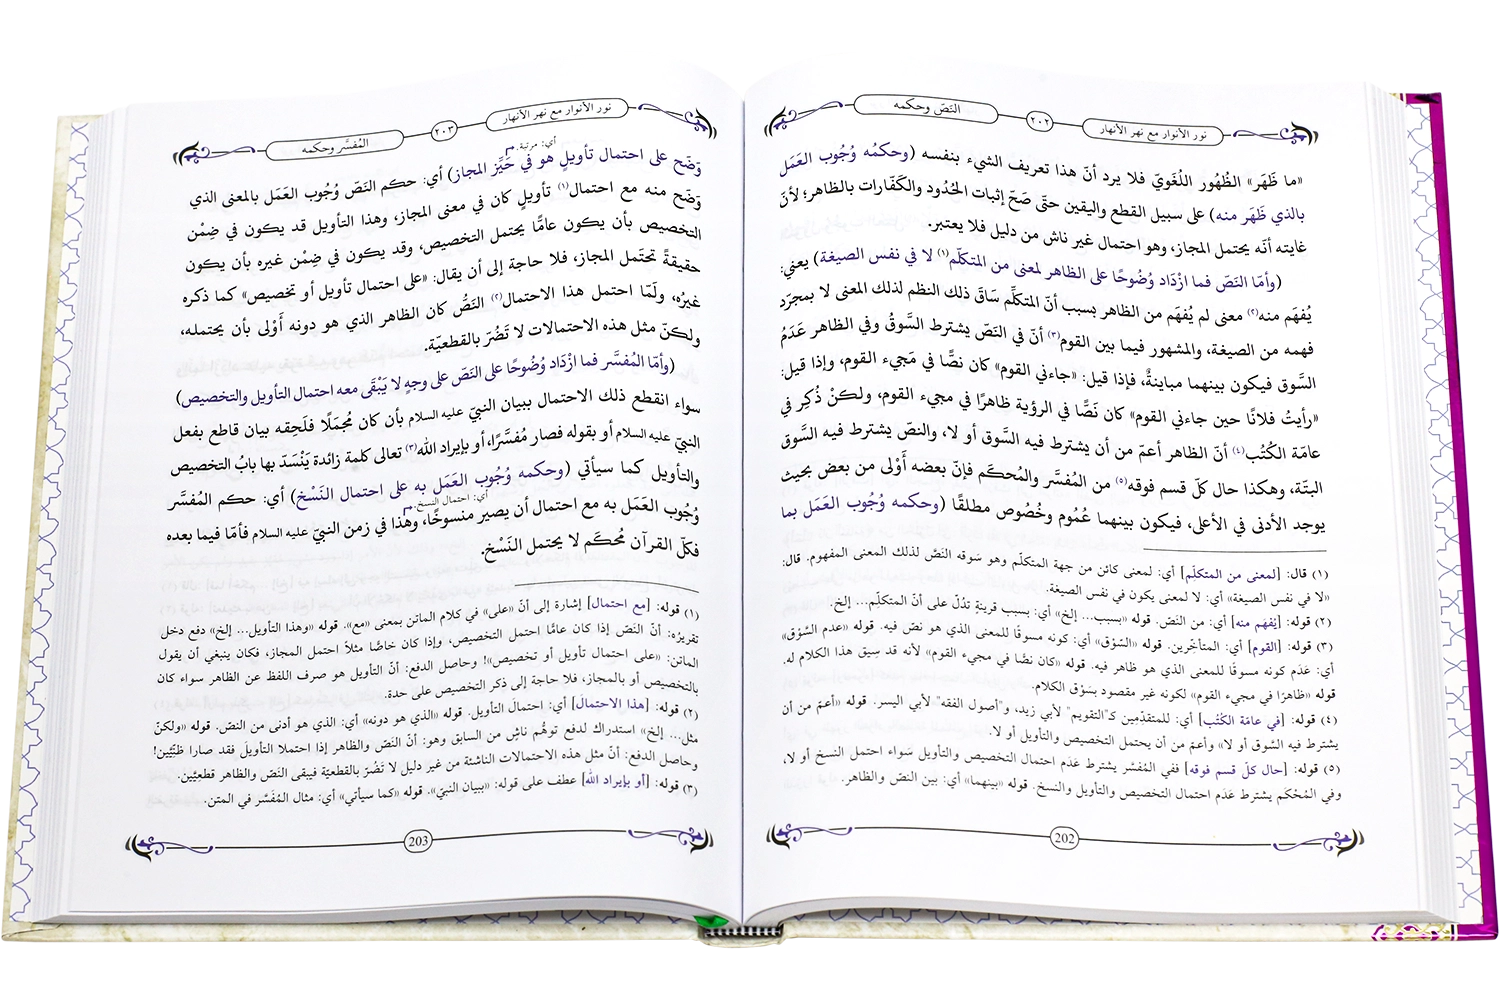 نور الأنوار مع نهر الأنهار ٢٠٢ النَصّ وحكمه
«ما ظَهَر» الظُهُور اللُغَويّ فلا يرد أنّ هذا تعريف الشيء بنفسه (وحكمُه وُجُوب العَمَل
بالذي ظَهَر منه) على سبيل القطع واليقين حتّى صَحّ إثبات الحُدُود والكَفّارات بالظاهر؛ لأنّ
غايته أنّه يحتمل المجاز، وهو احتمال غير ناش من دليل فلا يعتبر.
(وأمّا النَصّ فما ازْدَاد وُضُوحًا على الظاهر لمعنى من المتكلّم(١) لا في نفس الصيغة) يعني:
يُفهَم منه(٢) معنى لم يُفهَم من الظاهر بسبب أنّ المتكلِّم سَاقَ ذلك النظم لذلك المعنى لا بمجرّد
فهمه من الصيغة، والمشهور فيما بين القوم(٣) أنّ في النَصّ يشترط السَّوقُ وفي الظاهر عَدَمُ
السَّوق فيكون بينهما مباينةٌ، فإذا قيل: «جاءني القوم» كان نصًّا في مَجيء القوم، وإذا قيل:
«رأيتُ فلانًا حين جاءني القوم» كان نَصًّا في الرؤية ظاهرًا في مجيء القوم، ولكنْ ذُكِر في
عامّة الكُتُب(٤) أنّ الظاهر أعمّ من أن يشترط فيه السَّوق أو لا، والنصّ يشترط فيه السَّوق
البتّة، وهكذا حال كلّ قسم فوقه(٥) من المُفسَّر والمُحكَم فإنّ بعضه أَوْلى من بعض بحيث
يوجد الأدنى في الأعلى، فيكون بينهما عُمُوم وخُصُوص مطلقًا (وحكمه وُجُوب العَمَل بما
(١) قال: [لمعنى من المتكلّم] أي: لمعنى كائن من جهة المتكلّم وهو سَوقه النَصّ لذلك المعنى المفهوم. قال:
«لا في نفس الصيغة» أي: لا لمعنى يكون في نفس الصيغة.
(٢) قوله: [يُفهَم منه] أي: من النَصّ. قوله «بسبب... إلخ» أي: بسبب قرينةٍ تدُلّ على أنّ المتكلِّم... إلخ.
(٣) قوله: [القوم] أي: المتأخّرين. قوله «السَّوْق» أي: كونه مسوقًا للمعنى الذي هو نصّ فيه. قوله «عدم السَّوْق»
أي: عَدَم كونه مسوقًا للمعنى الذي هو ظاهر فيه. قوله «كان نصًّا في مجيء القوم» لأنه قد سِيق هذا الكلام له.
قوله «ظاهرًا في مجيء القوم» لكونه غير مقصود بسَوْق الكلام.
(٤) قوله: [في عامّة الكُتُب] أي: للمتقدّمين كـ"التقويم" لأبي زيد، و"أصول الفقه" لأبي اليسر. قوله «أعمّ من أن
يشترط فيه السَّوق أو لا» وأعمّ من أن يحتمل التخصيص والتأويل أو لا.
(٥) قوله: [حال كلّ قسم فوقه] ففي المُفسّر يشترط عَدَم احتمال التخصيص والتأويل سَواء احتمل النسخ أو لا،
وفي المُحْكَم يشترط عَدَم احتمال التخصيص والتأويل والنسخ. قوله «بينهما» أي: بين النصّ والظاهر.
202
نور الأنوار مع نهر الأنهار ٢٠٣ المُفسَّر وحكمه
أي: مرتبة.
وَضَح على احتمال تأويلٍ هو في حَيِّز المجاز) أي: حكم النَصّ وُجُوب العَمَل بالمعنى الذي
وَضَح منه مع احتمال(١) تأويلٍ كان في معنى المجاز، وهذا التأويل قد يكون في ضِمْن
التخصيص بأن يكون عامًّا يحتمل التخصيص، وقد يكون في ضِمْن غيره بأن يكون
حقيقةً تحتَمل المجاز، فلا حاجة إلى أن يقال: «على احتمال تأويل أو تخصيص» كما ذكره
غيرُه، ولَمّا احتمل هذا الاحتمال(٢) النَصُّ كان الظاهر الذي هو دونه أَوْلى بأن يحتمله،
ولكنّ مثل هذه الاحتمالات لا تَضُرّ بالقطعيّة.
(وأمّا المُفسَّر فما ازْدَاد وُضُوحًا على النَصّ على وجهٍ لا يَبْقَى معه احتمال التأويل والتخصيص)
سواء انقطع ذلك الاحتمال ببيان النبيّ عليه السلام بأن كان مُجمَلًا فلَحِقه بيان قاطع بفعل
النبيّ عليه السلام أو بقوله فصار مُفسَّرًا، أو بإيراد الله(٣) تعالى كلمة زائدة يَنْسَدّ بها بابُ التخصيص
والتأويل كما سيأتي (وحكمه وُجُوب العَمَل به على احتمال النَسْخ) أي: حكم المُفسَّر
أي: احتمال النسخ.
وُجُوب العَمَل به مع احتمال أن يصير منسوخًا، وهذا في زمن النبيّ عليه السلام فأمّا فيما بعده
فكلّ القرآن مُحكَم لا يحتمل النَسْخ.
(١) قوله: [مع احتمال] إشارة إلى أنّ «على» في كلام الماتن بمعنى «مع». قوله «وهذا التأويل... إلخ» دفع دخل
تقريرُه: أنّ النَصّ إذا كان عامًّا احتمل التخصيص، وإذا كان خاصًّا مثلًا احتمل المجاز، فكان ينبغي أن يقول
الماتن: «على احتمال تأويل أو تخصيص»! وحاصل الدفع: أنّ التأويل هو صرف اللفظ عن الظاهر سواء كان
بالتخصيص أو بالمجاز، فلا حاجة إلى ذكر التخصيص على حدة.
(٢) قوله: [هذا الاحتمال] أي: احتمالَ التأويل. قوله «الذي هو دونه» أي: الذي هو أدنى من النصّ. قوله «ولكنّ
مثل... إلخ» استدراك لدفع توهُّم ناشٍ من السابق وهو: أنّ النَصّ والظاهر إذا احتملا التأويلَ فقد صارا ظنّيَّين!
وحاصل الدفع: أنّ مثل هذه الاحتمالات الناشئة من غير دليل لا تَضُرّ بالقطعيّة فيبقى النَصّ والظاهر قطعيَّين.
(٣) قوله: [أو بإيراد الله] عطف على قوله: «ببيان النبيّ». قوله «كما سيأتي» أي: مثال المُفَسَّر في المتن.
203